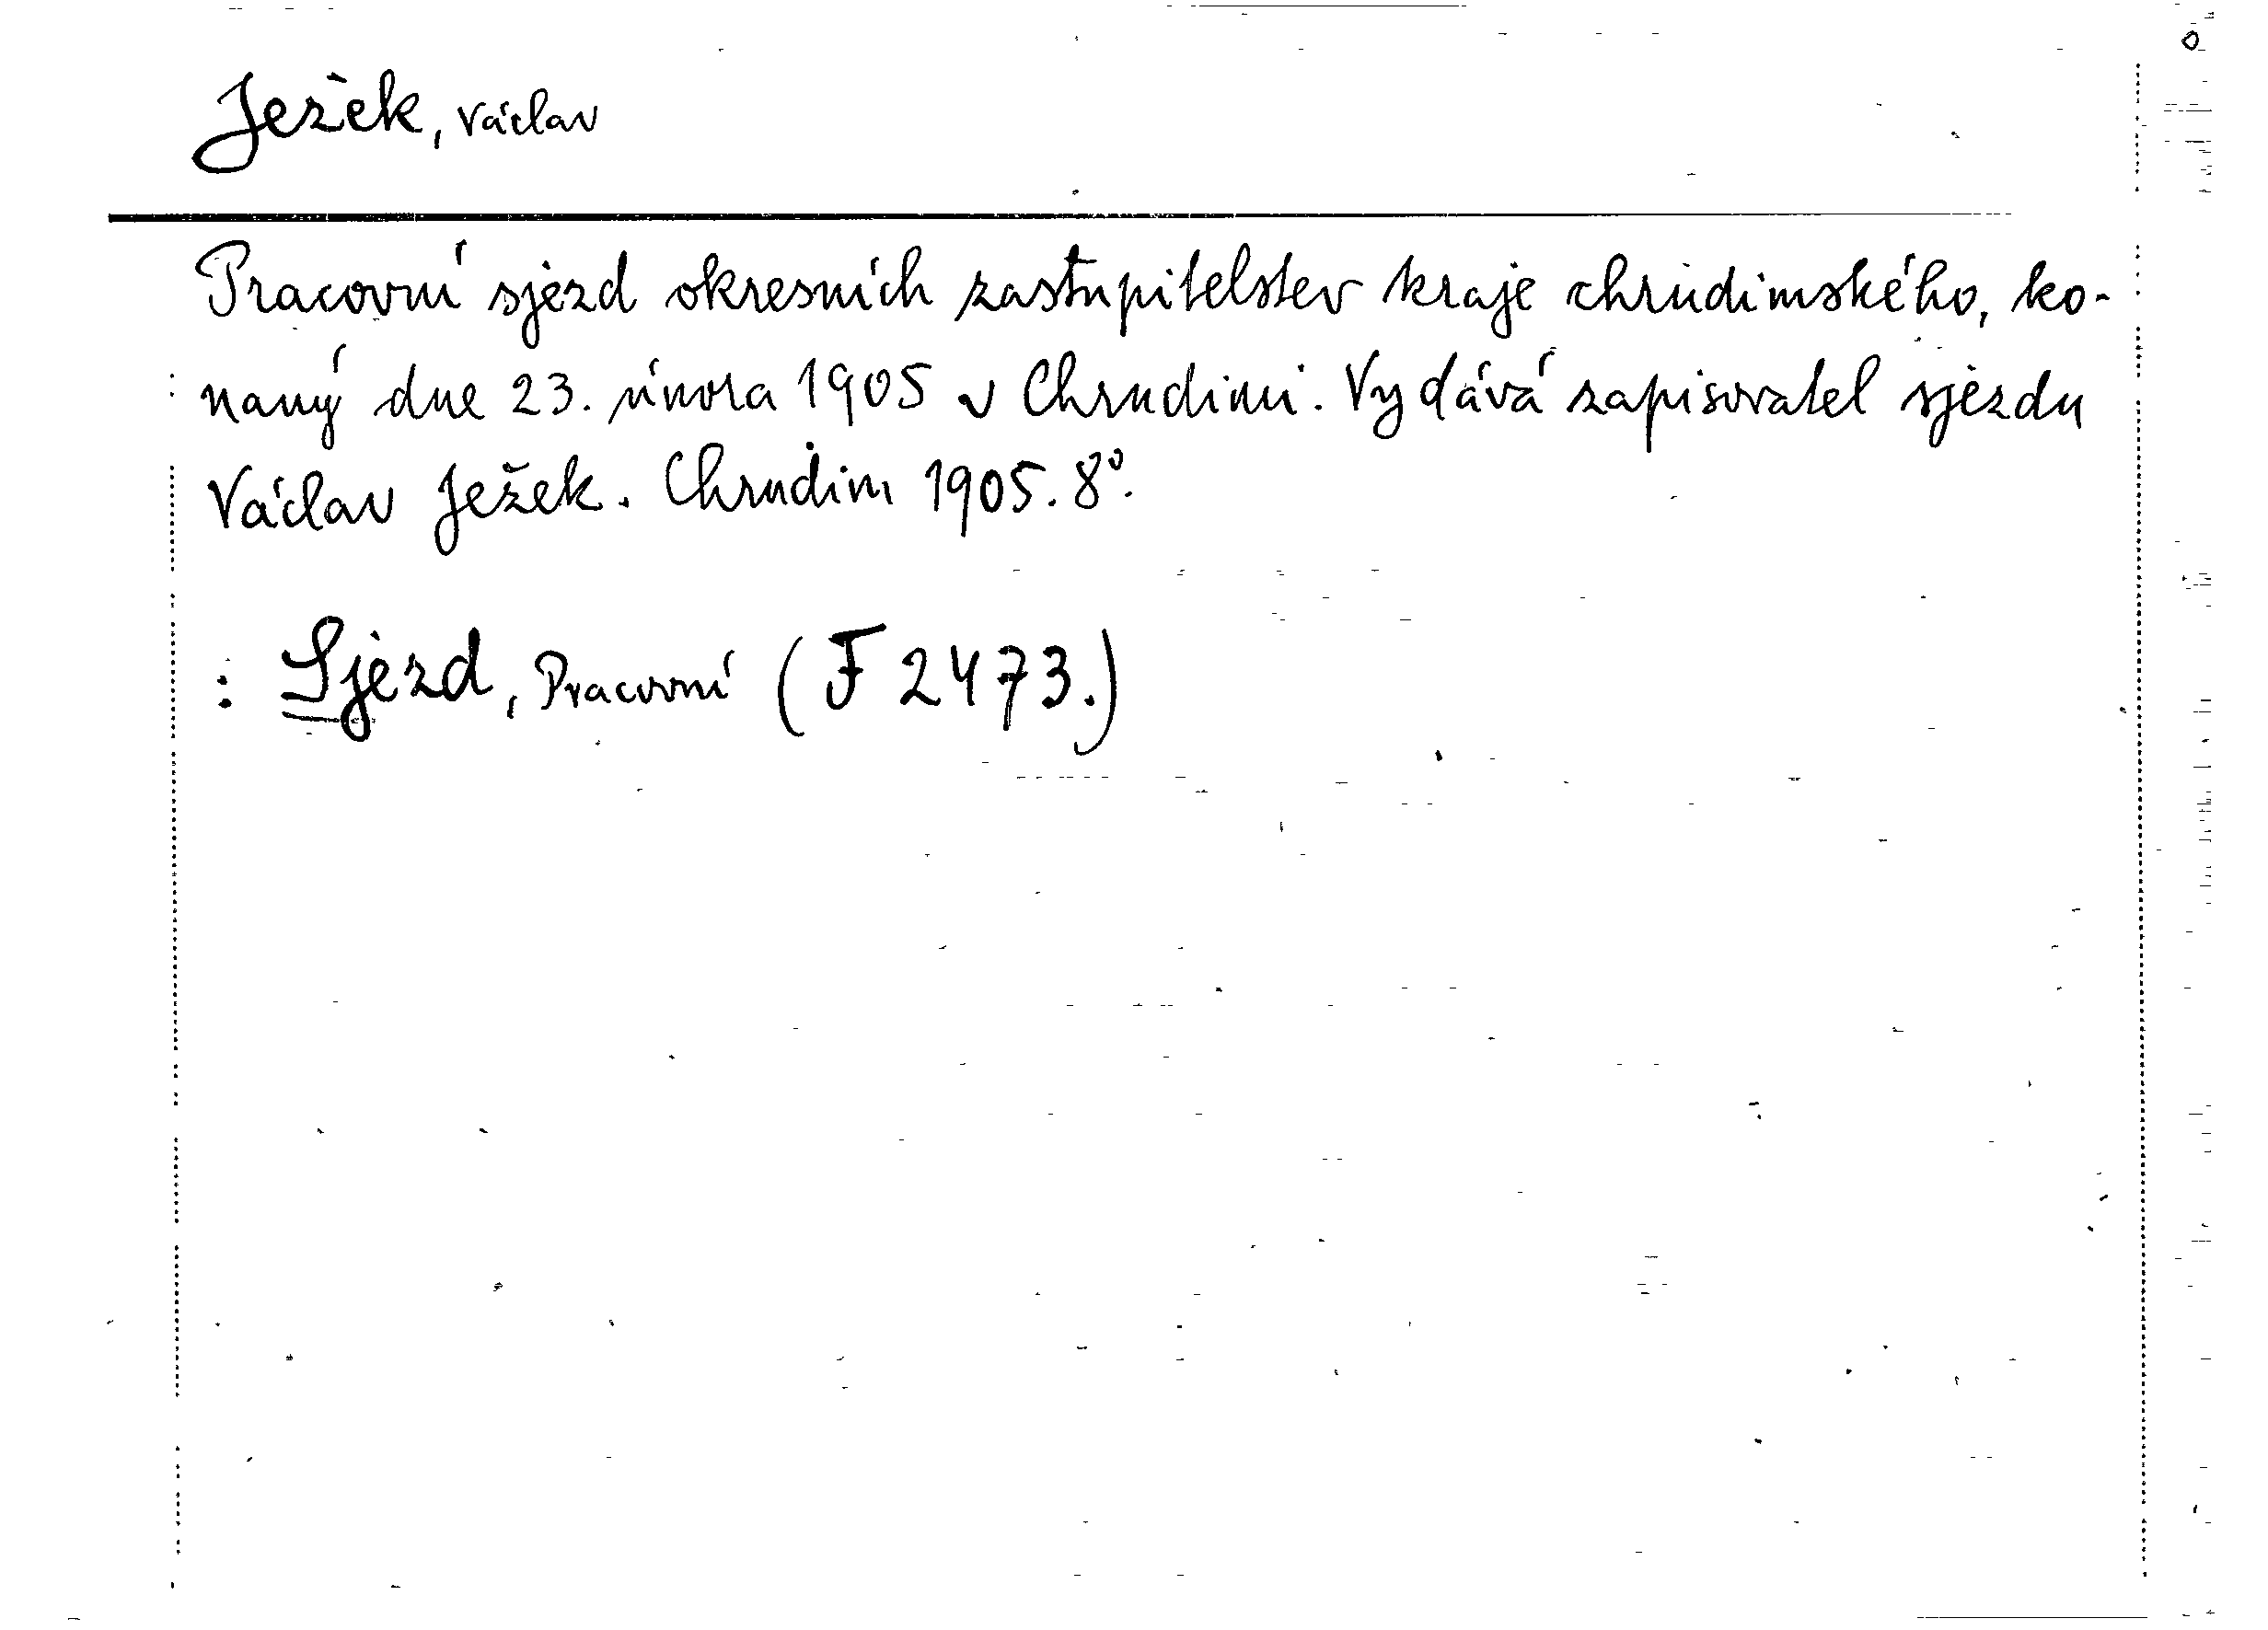 Ježek, Václav
Pracovní sjezd okresních zastupitelstev kraje chrudimského, ko-
naný dne 23. února 1905 v Chrudimi. Vydává zapisovatel sjezdu
Václav Ježek. Chrudim 1905. 8°.
: Sjezd, Pracovní (F 2473.)